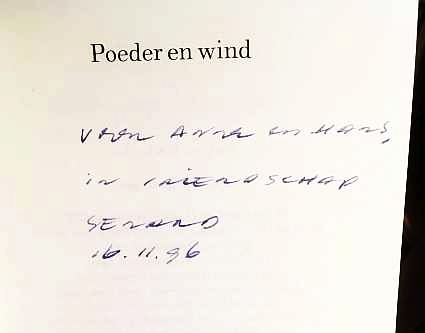 Poeder en wind
VOOR ANNE EN HANS,
IN VRIENDSCHAP
GERARD
16.11.96